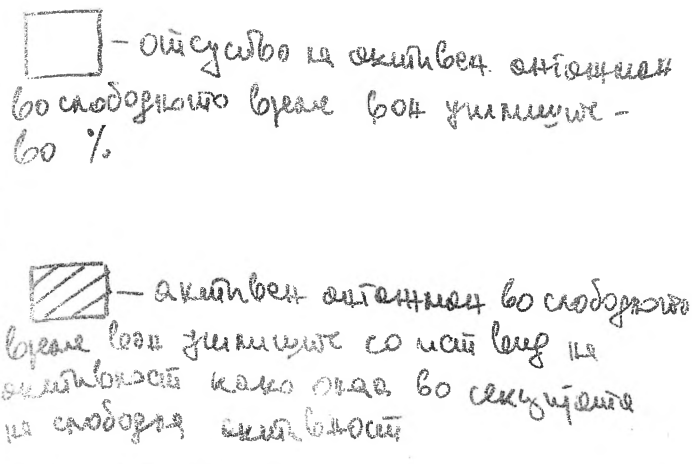 – отсуство на активен ангажман
во слободното време вон училиште –
во %
– активен ангажман во слободното
време вон училиште со ист вид на
активност како онаа во секцијата
на слободна активност